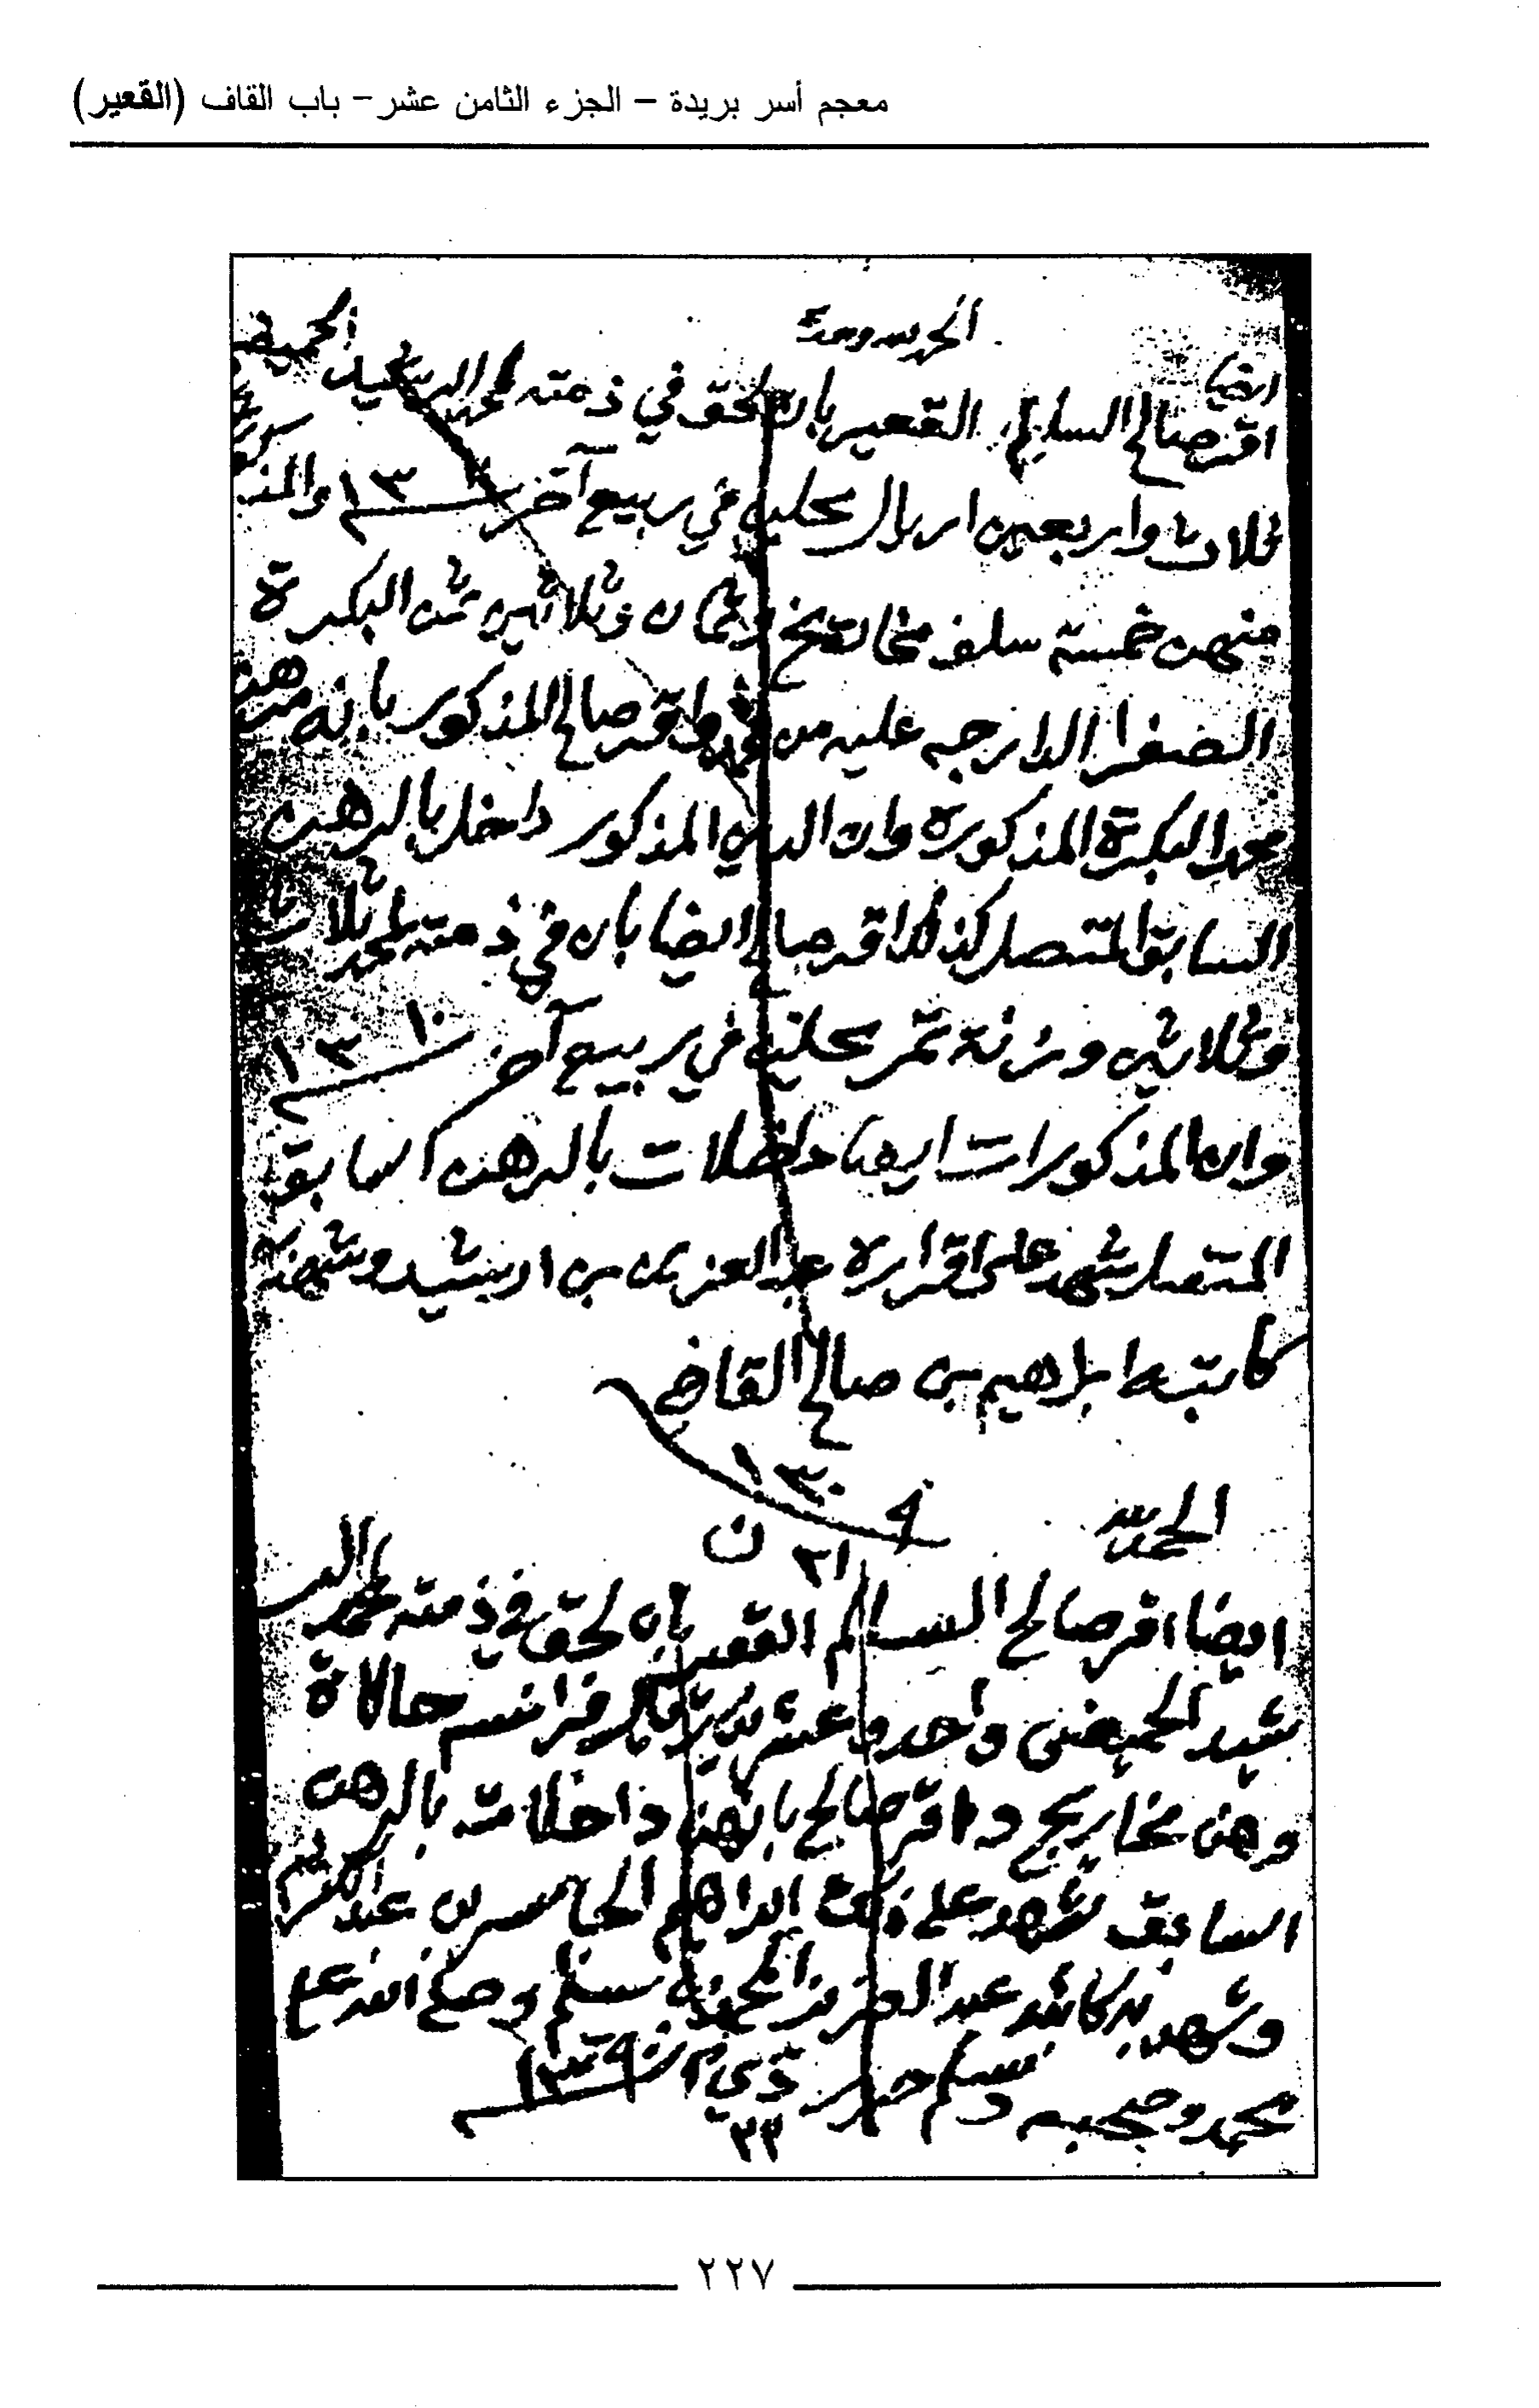 معجم أسر بريدة – الجزء الثامن عشر – باب القاف (القعير)
الحمد لله وحده
ايضا
اقر صالح السالم القعير بان لحق في ذمته لمحمد الرشيد الحميضي
ثلاث واربعين اريال يحلن في ربيع آخر ١٣ والمذ
منهن خمسة سلف وثمان وثلاثين ثمن البكرة
الصفرا عليه من واقر صالح المذكور بانه مرهن
محمد البكرة المذكورة وان الدين المذكور داخل بالرهن
السابق المتصل كذلك اقر صالح ايضا بان في ذمته لمحمد ثلاث
وثلاثين وزنة تمر يحلن في ربيع آخر ١٣١٠
وان المذكورات ايضا داخلات بالرهن السابق
المتصل شهد على اقراره عبد العزيز بن ارشيد وشهد به
كاتبه ابراهيم بن صالح القاضي
الحمد لله
٢١ ن
ايضا اقر صالح السالم القعير بان لحق في ذمته لمحمد الر
شيد الحميضي واحد وعشرين ريال فرانسه حالاة
وهن مخاريج واقر صالح بانهن داخلات بالرهن
السابق شهد على ذلك ابراهيم الجاسر بن عبد الكريم
وشهد به كاتبه عبد العزيز وصلى الله على
محمد وصحبه وسلم حرر
٢٢٧